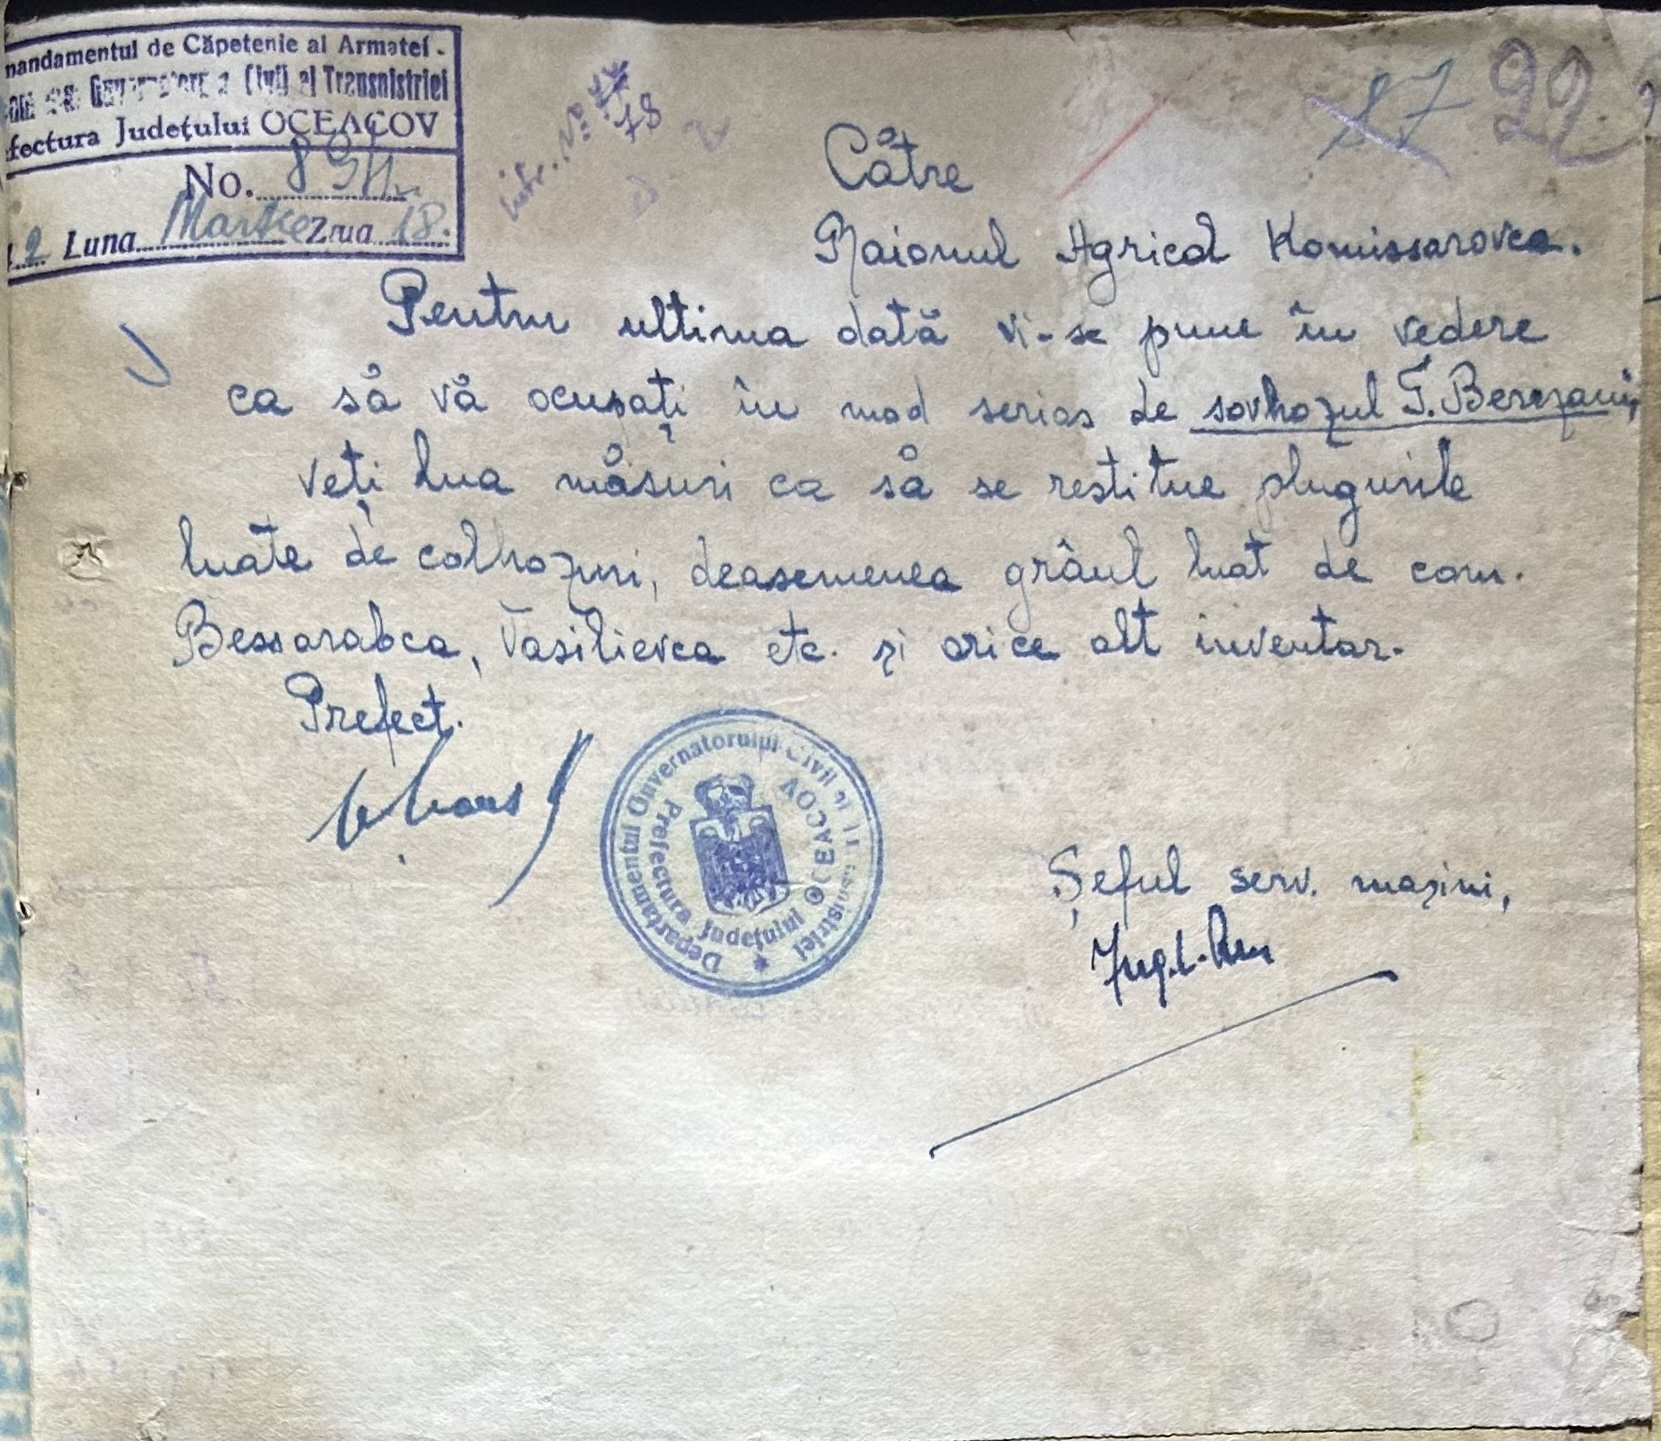 mandamentul de Căpetenie al Armatei.
Civil al Transnistriei
fectura Județului OCEACOV
No. 891
2 Luna Martie Ziua 18.
intr. No 77
78
17 22
Către
Raionul Agricol Komissarovca.
Pentru ultima dată vi-se pune în vedere
ca să vă ocupați în mod serios de sovhozul T. Berezani,
veți lua măsuri ca să se restitue plugurile
luate de colhozuri, deasemenea grâul luat de com.
Bessarabca, Vasilievca etc. și orice alt inventar.
Prefect.
Departamentul Guvernatorului Civil al Transnistriei
Prefectura Județului OCEACOV
Șeful serv. mașini,